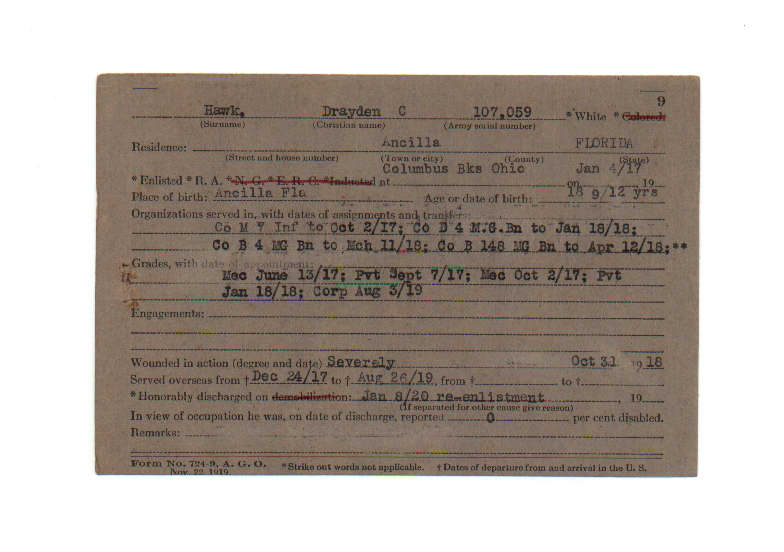 9
Hawk, Drayden C 107,059 * White * Colored:
(Surname) (Christian name) (Army serial number)
Residence: Ancilla FLORIDA
(Street and house number) (Town or city) (County) (State)
Columbus Bks Ohio Jan 4/17
* Enlisted * R. A. * N. G. * E. R. C. * Inducted at on 19
Place of birth: Ancilla Fla Age or date of birth: 18 9/12 yrs
Organizations served in, with dates of assignments and transfers:
Co M 7 Inf to Oct 2/17; Co D 4 M.G.Bn to Jan 18/18;
Co B 4 MG Bn to Mch 11/18; Co B 148 MG Bn to Apr 12/18;**
Grades, with date of appointment:
Mec June 13/17; Pvt Sept 7/17; Mec Oct 2/17; Pvt
Jan 18/18; Corp Aug 3/19
Engagements:
Wounded in action (degree and date) Severely Oct 31 19 18
Served overseas from † Dec 24/17 to † Aug 26/19, from † to †
* Honorably discharged on demobilization: Jan 8/20 re-enlistment 19
(If separated for other cause give reason)
In view of occupation he was, on date of discharge, reported 0 per cent disabled.
Remarks:
Form No. 724-9, A. G. O. * Strike out words not applicable. † Dates of departure from and arrival in the U. S.
Nov. 22, 1919.